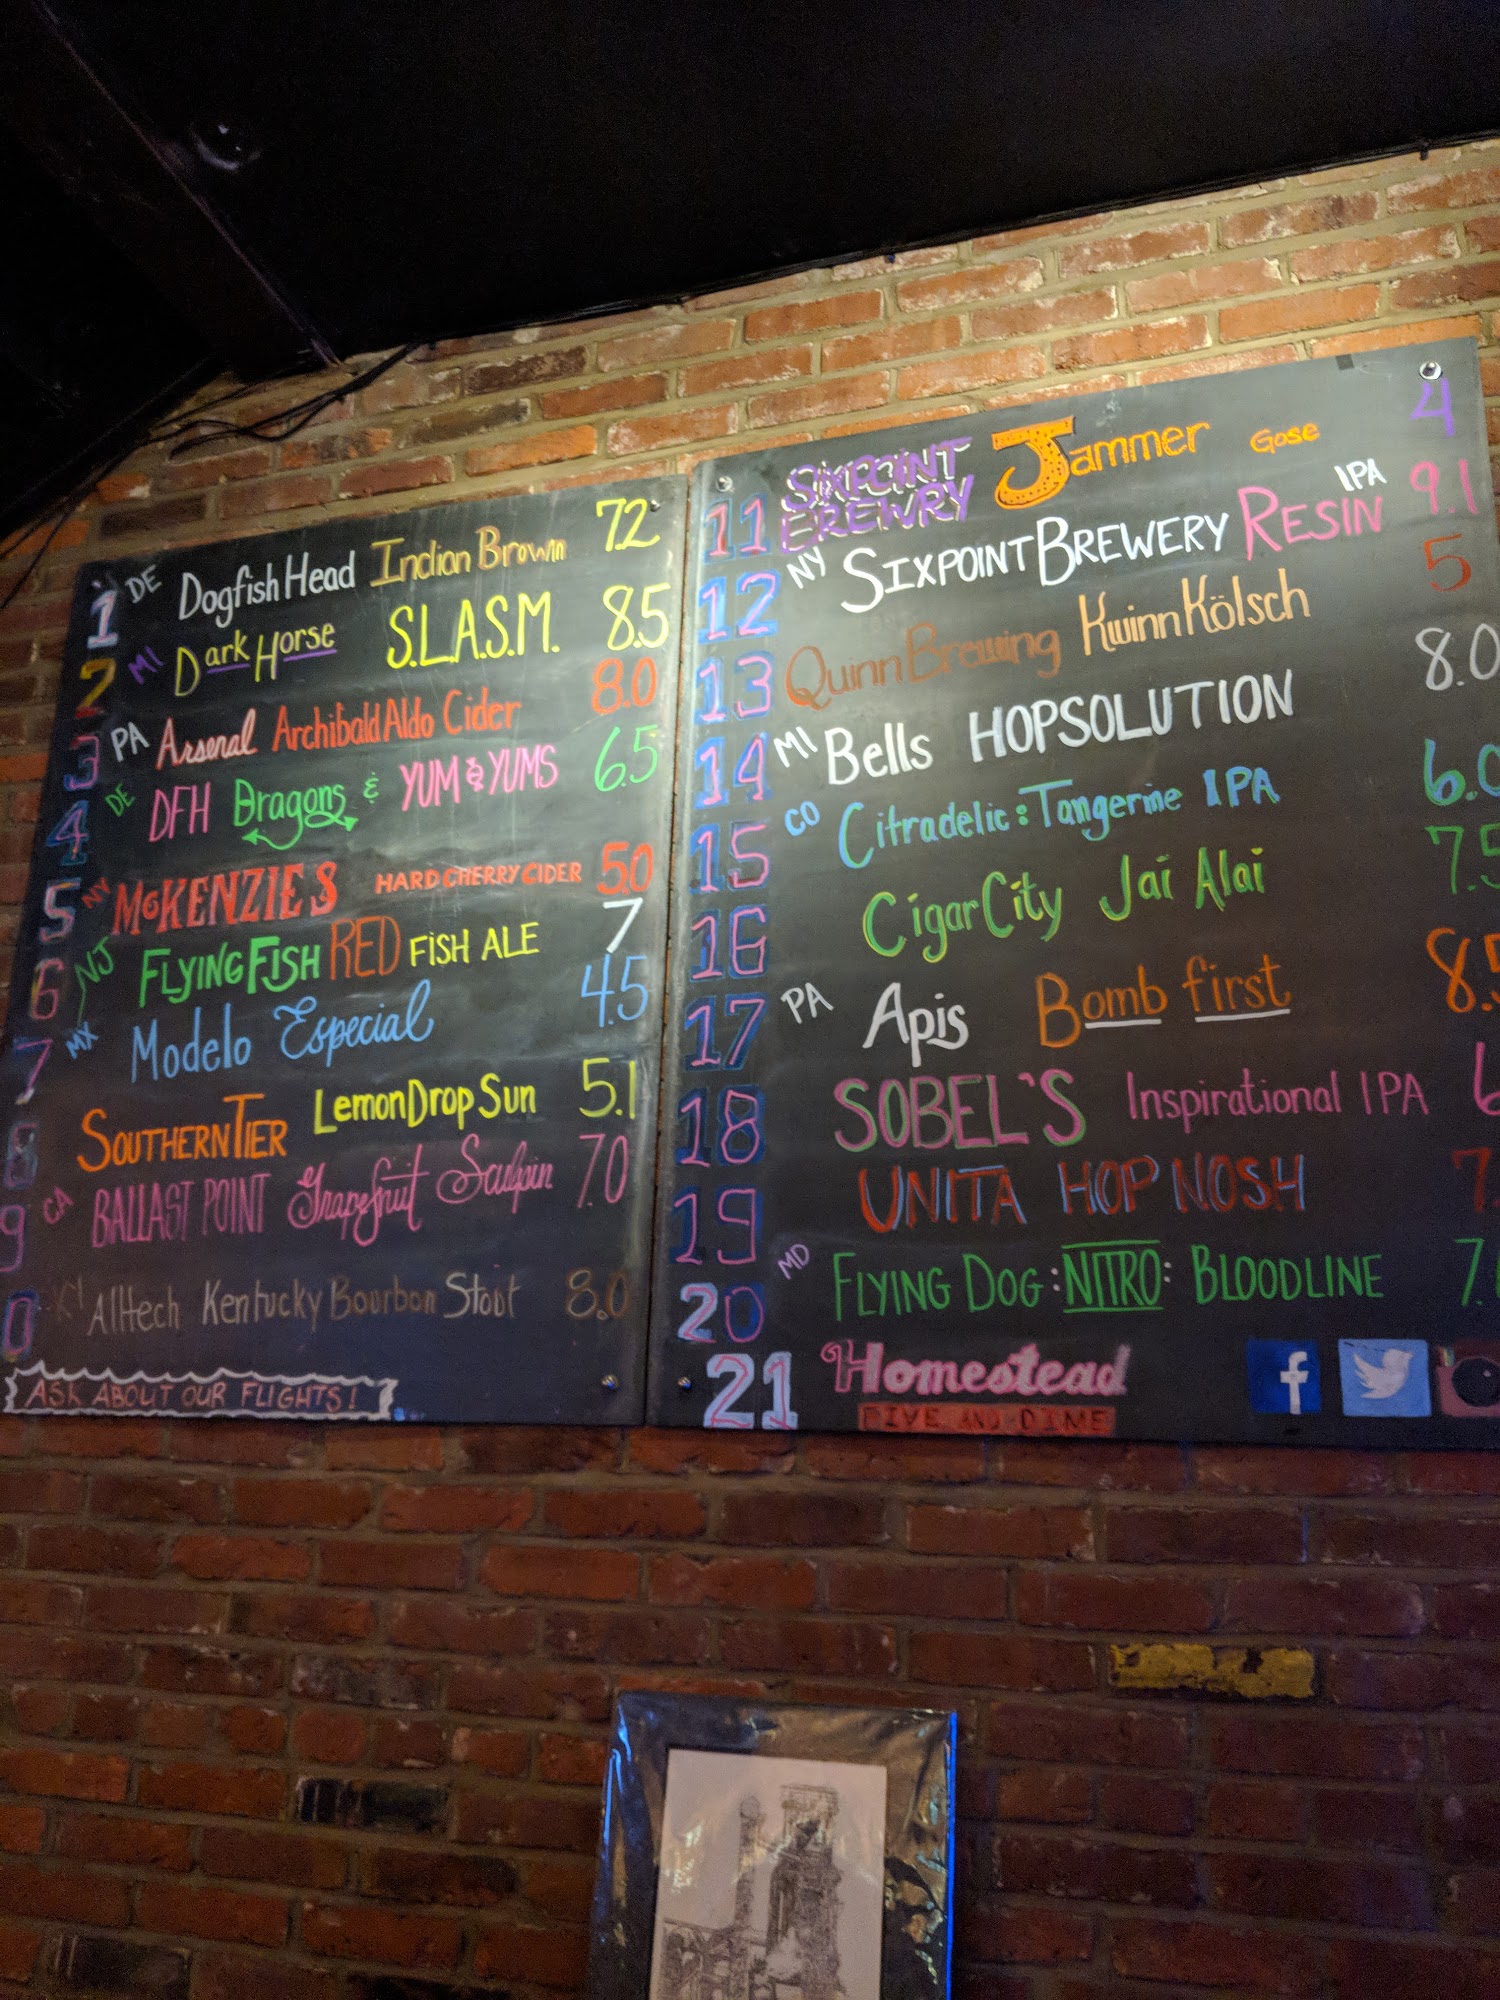 1 DE Dogfish Head Indian Brown 7.2
2 MI Dark Horse S.L.A.S.M. 8.5
3 PA Arsenal Archibald Aldo Cider 8.0
4 DE DFH Dragons & YUM & YUMS 6.5
5 NY McKENZIE'S HARD CHERRY CIDER 5.0
6 NJ FLYING FISH RED FISH ALE 7
7 MX Modelo Especial 4.5
8 SOUTHERN TIER Lemon Drop Sun 5.1
9 CA BALLAST POINT Grapefruit Sculpin 7.0
0 KY Alltech Kentucky Bourbon Stout 8.0
ASK ABOUT OUR FLIGHTS!
11 SIXPOINT BREWRY Jammer Gose 4
12 NY SIXPOINT BREWERY RESIN IPA 9.1
13 Quinn Brewing Kwinn Kölsch 5
14 MI Bells HOPSOLUTION 8.0
15 CO Citradelic: Tangerine IPA 6.0
16 Cigar City Jai Alai 7.5
17 PA Apis Bomb first 8.5
18 SOBEL'S Inspirational IPA
19 UNITA HOP NOSH 7.
20 MD FLYING DOG :NITRO: BLOODLINE 7.
21 Homestead
FIVE AND DIME
f